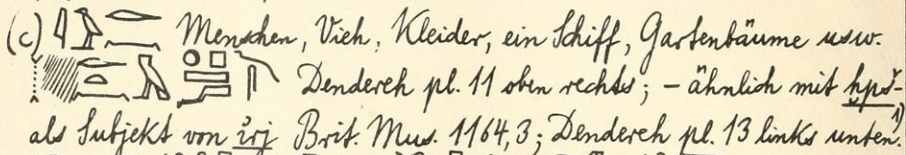 (c) Menschen, Vieh, Kleider, ein Schiff, Gartenbäume usw.
Dendereh pl. 11 oben rechts; – ähnlich mit ḫpš-
als Subjekt von ỉrj Brit. Mus. 1164,3; Dendereh pl. 13 links unten.1)